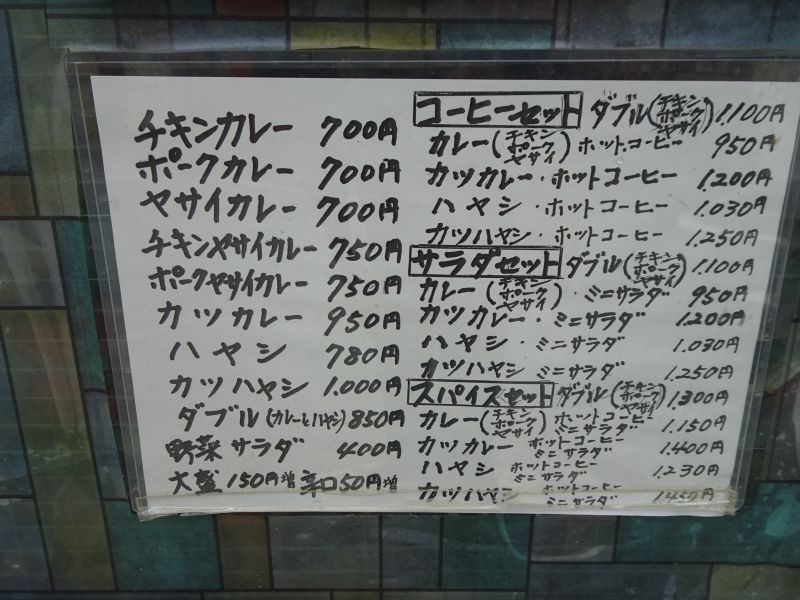 チキンカレー 700円
ポークカレー 700円
ヤサイカレー 700円
チキンヤサイカレー 750円
ポークヤサイカレー 750円
カツカレー 950円
ハヤシ 780円
カツハヤシ 1.000円
ダブル(カレーとハヤシ) 850円
野菜サラダ 400円
大盛150円増 辛口50円増
コーヒーセット ダブル(チキン ポーク ヤサイ) 1.100円
カレー(チキン ポーク ヤサイ) ホットコーヒー 950円
カツカレー・ホットコーヒー 1.200円
ハヤシ・ホットコーヒー 1.030円
カツハヤシ・ホットコーヒー 1.250円
サラダセット ダブル(チキン ポーク ヤサイ) 1.100円
カレー(チキン ポーク ヤサイ)・ミニサラダ 950円
カツカレー・ミニサラダ 1.200円
ハヤシ・ミニサラダ 1.030円
カツハヤシ ミニサラダ 1.250円
スパイスセット ダブル(チキン ポーク ヤサイ) 1.300円
カレー(チキン ポーク ヤサイ) ホットコーヒー ミニサラダ 1.150円
カツカレー ホットコーヒー ミニサラダ 1.400円
ハヤシ ホットコーヒー ミニサラダ 1.230円
カツハヤシ ホットコーヒー ミニサラダ 1.450円